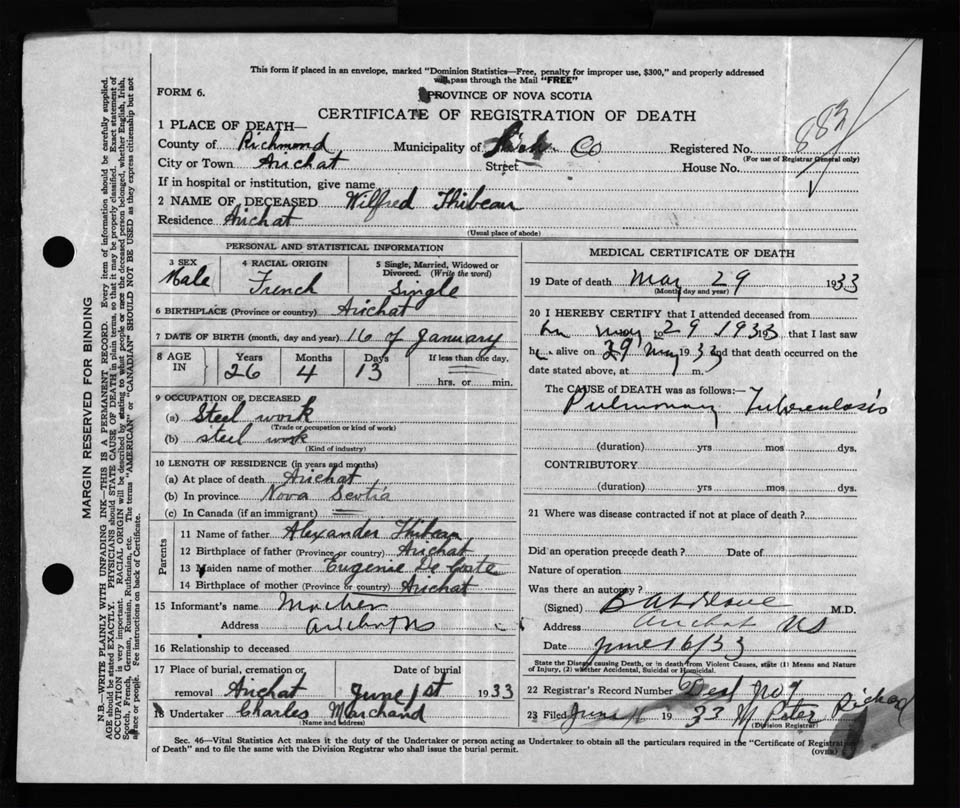 This form if placed in an envelope, marked "Dominion Statistics—Free, penalty for improper use, $300," and properly addressed
will pass through the Mail "FREE"
FORM 6.
PROVINCE OF NOVA SCOTIA
CERTIFICATE OF REGISTRATION OF DEATH
883
1 PLACE OF DEATH—
County of Richmond Municipality of Co Registered No.
(For use of Registrar General only)
City or Town Arichat Street House No.
If in hospital or institution, give name
2 NAME OF DECEASED Wilfred Thibeau
Residence Arichat
(Usual place of abode)
PERSONAL AND STATISTICAL INFORMATION
3 SEX 4 RACIAL ORIGIN 5 Single, Married, Widowed or
Divorced. (Write the word)
Male French Single
6 BIRTHPLACE (Province or country) Arichat
7 DATE OF BIRTH (month, day and year) 16 of January
8 AGE IN Years Months Days If less than one day,
26 4 13
hrs. or min.
9 OCCUPATION OF DECEASED
(a) Steel work
(Trade or occupation or kind of work)
(b) steel work
(Kind of industry)
10 LENGTH OF RESIDENCE (in years and months)
(a) At place of death Arichat
(b) In province Nova Scotia
(c) In Canada (if an immigrant)
Parents
11 Name of father Alexander Thibeau
12 Birthplace of father (Province or country) Arichat
13 Maiden name of mother Eugenie De Coste
14 Birthplace of mother (Province or country) Arichat
15 Informant's name Mother
Address Arichat NS
16 Relationship to deceased
17 Place of burial, cremation or Date of burial
removal Arichat June 1st 1933
18 Undertaker Charles Marchand
(Name and address)
MEDICAL CERTIFICATE OF DEATH
19 Date of death May 29 1933
(Month, day and year)
20 I HEREBY CERTIFY that I attended deceased from
May to 29 1933 that I last saw
h alive on 29 May 1933 and that death occurred on the
date stated above, at m.
The CAUSE OF DEATH was as follows:—
Pulmonary Tuberculosis
(duration) yrs mos dys.
CONTRIBUTORY
(duration) yrs mos dys.
21 Where was disease contracted if not at place of death?
Did an operation precede death? Date of
Nature of operation
Was there an autopsy?
(Signed) M.D.
Address Arichat NS
Date June 16/33
State the Disease causing Death, or in death from Violent Causes, state (1) Means and Nature
of Injury, (2) whether Accidental, Suicidal or Homicidal.
22 Registrar's Record Number No 9
23 Filed June 16 1933 M Peter Richard
(Division Registrar)
Sec. 46—Vital Statistics Act makes it the duty of the Undertaker or person acting as Undertaker to obtain all the particulars required in the "Certificate of Registration
of Death" and to file the same with the Division Registrar who shall issue the burial permit.
(OVER)
MARGIN RESERVED FOR BINDING
N.B.—WRITE PLAINLY WITH UNFADING INK—THIS IS A PERMANENT RECORD. Every item of information should be carefully supplied.
AGE should be stated EXACTLY. PHYSICIANS should STATE CAUSE OF DEATH in plain terms, so that it may be properly classified. Exact statement of
OCCUPATION is very important. RACIAL ORIGIN will be described by stating to what people or race the deceased person belonged, whether English, Irish,
Scotch, French, German, Russian, Ruthenian, etc. The terms "AMERICAN" or "CANADIAN" SHOULD NOT BE USED as they express citizenship but not
a race or people. Fee instructions on back of Certificate.